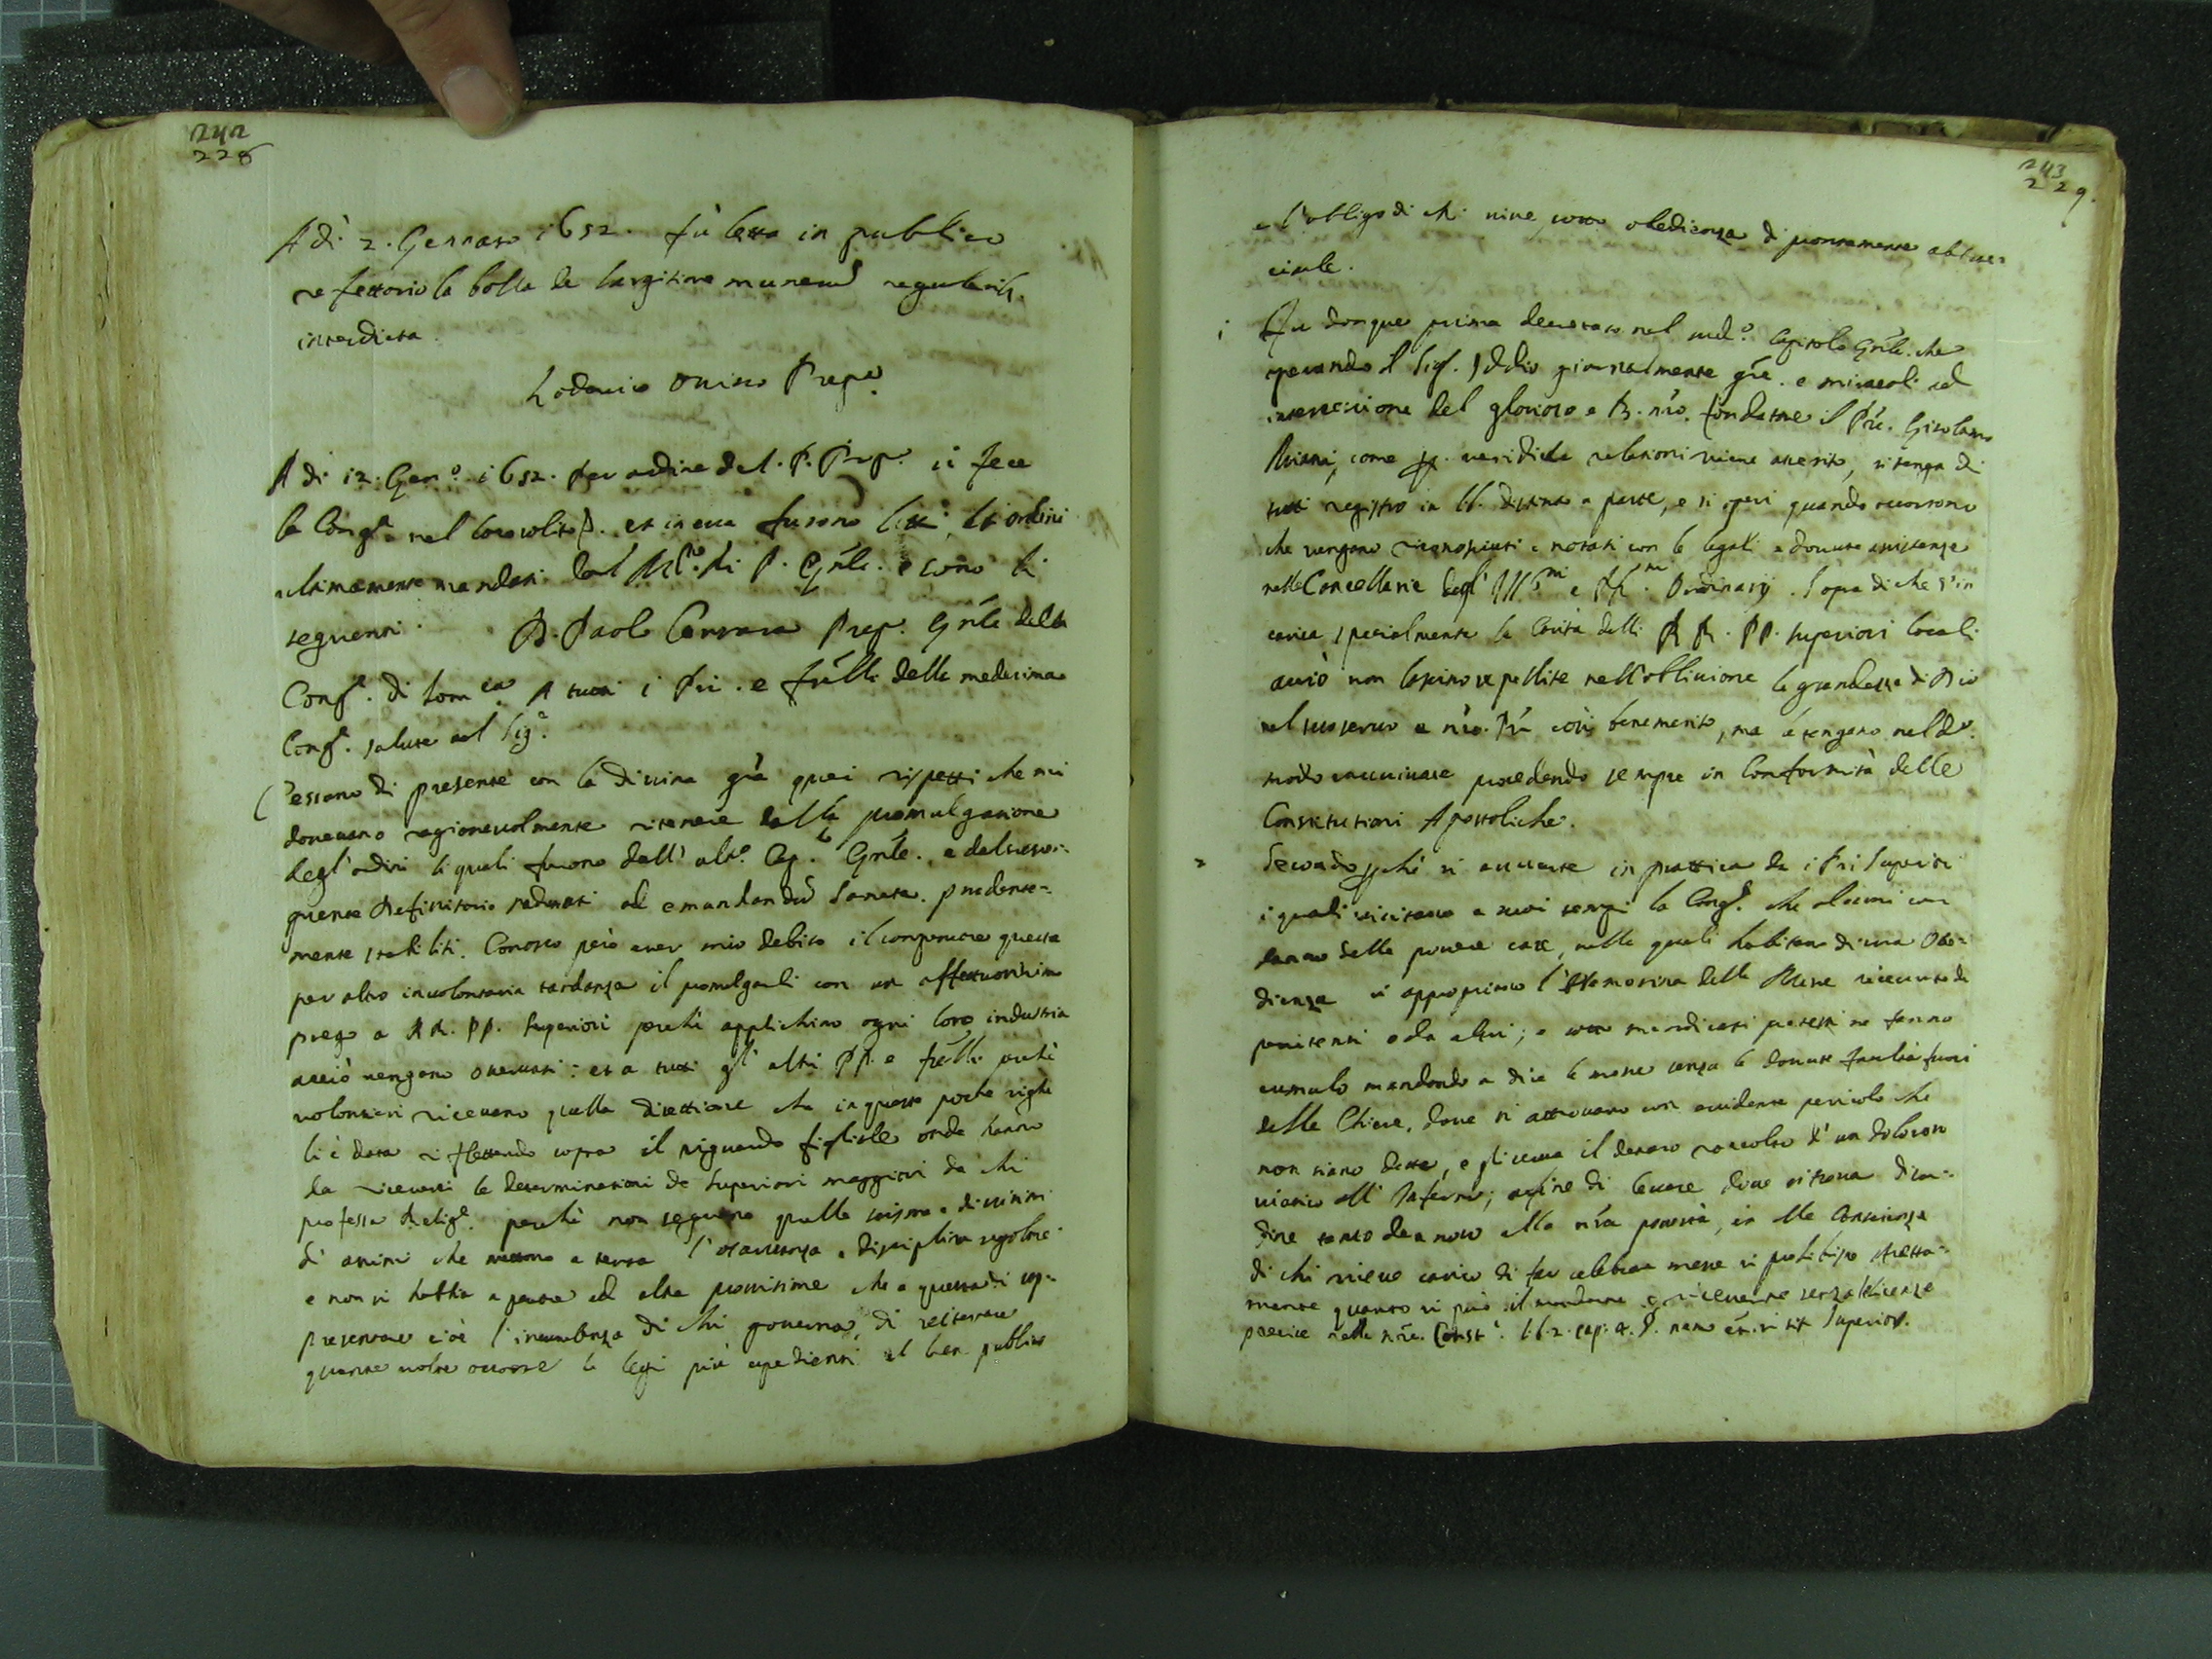 242
228
A dì 2. Gennaro 1652. fù letta in publico
refettorio la bolla de largitione munerum regularib.
interdicta.
Lodovico Prepo
A di 12. Genº. 1652. per ordine del P. Prep. si fece
la Congª. nel loco solito et in essa furono letti li ordini
ultimamente mandati dal P. Gñle. e sono li
seguenti. D. Paolo Carrara Prep. Gñle della
Congª. di Somca. A tutti i Pri. e frelli della medesima
Congª. salute nel Sigª.
Cessano di presente con la divina grà quei rispetti che mi
dovevano ragionevolmente ritenere dalla promulgatione
degl'ordini li quali furono dall' ultº. Cap.lo Gñle. e dal susse-
quente Definitorio radunati ad emandandum Sancta. prudente-
mente stabiliti. Conosco però esser mio debito il compensare questa
per altro involontaria tardanza il promulgarli con un affettuosissimo
prego a RR. PP. Superiori perchè applichino ogni loro industria
acciò vengano osservati: et a tutti gl'altri PP. e frelli perchè
volontieri ricevano quella direttione che in queste poche righe
li è data riflettendo sopra il riguardo figliale onde hanno
da riceversi le determinationi de Superiori maggiori da chi
professa Religª. perchè non seguano quelle scisme e divisioni
d'animi che mettono a terra l'osservanza e disciplina regolare
e non si habbia a passare ad altre provisione che a questa di rap-
presentare cioè l'incumbenza di chi governa, di reiterare
quante volte occorre le legi più espedienti al ben publico
243
229.
e l'obligo di chi vive sotto obedienza di prontamente abbrac-
ciarle.
1 Fu donque prima decretato nel medº. Capitolo Gñle. che
operando il Sig. Iddio giornalmente gre. e miracoli ad
intercessione del glorioso e B. nro. fondatore il Pre. Girolamo
Miani, come p. veridiche relationi viene asserito, si tenga di
tutti registro in lib. distinto a parte, e si operi quando occorrono
che vengano riconosciuti e notati con le legali e dovute assistenze
nelle Cancellarie degl' Illmi e Rmi. Ordinarij. Sopra di che s'in
carica specialmente la Carità delli RR. PP. Superiori locali
acciò non lascino sepellite nell'oblivione le grandezze di Dio
nel suo servo e nro. Pre così benemerito, ma le tengano nel dº.
modo procedendo sempre in Conformità delle
Constitutioni Apostoliche.
2 Secondo perchè si avverte in prattica da i Pri Superiori
i quali visitano a suoi tempi la Congª. che alcuni con
danno delle povere case, nelle quali habitano di una Obe-
dienza si appropriano l'Elemosina delle Messe ricevute da
penitenti e da altri; e sotto mendicati pretesti ne fanno
cumulo mandando a dire le messe senza le dovute facultà fuori
delle Chiese, dove si attrovano con evidente pericolo che
non siano dette, e gli serva il denaro raccolto d'un doloroso
viatico all' Inferno; a fine di levare dove si trova disor-
dine tanto dannoso alla nra povertà, et alla Conscienza
di chi riceve carico di far celebrar messe si prohibisce stretta-
mente quanto si può il mandarne o riceverne senza licenza
nelle nre. Constni. lib. 2. cap. 4. §. nemo Superior.